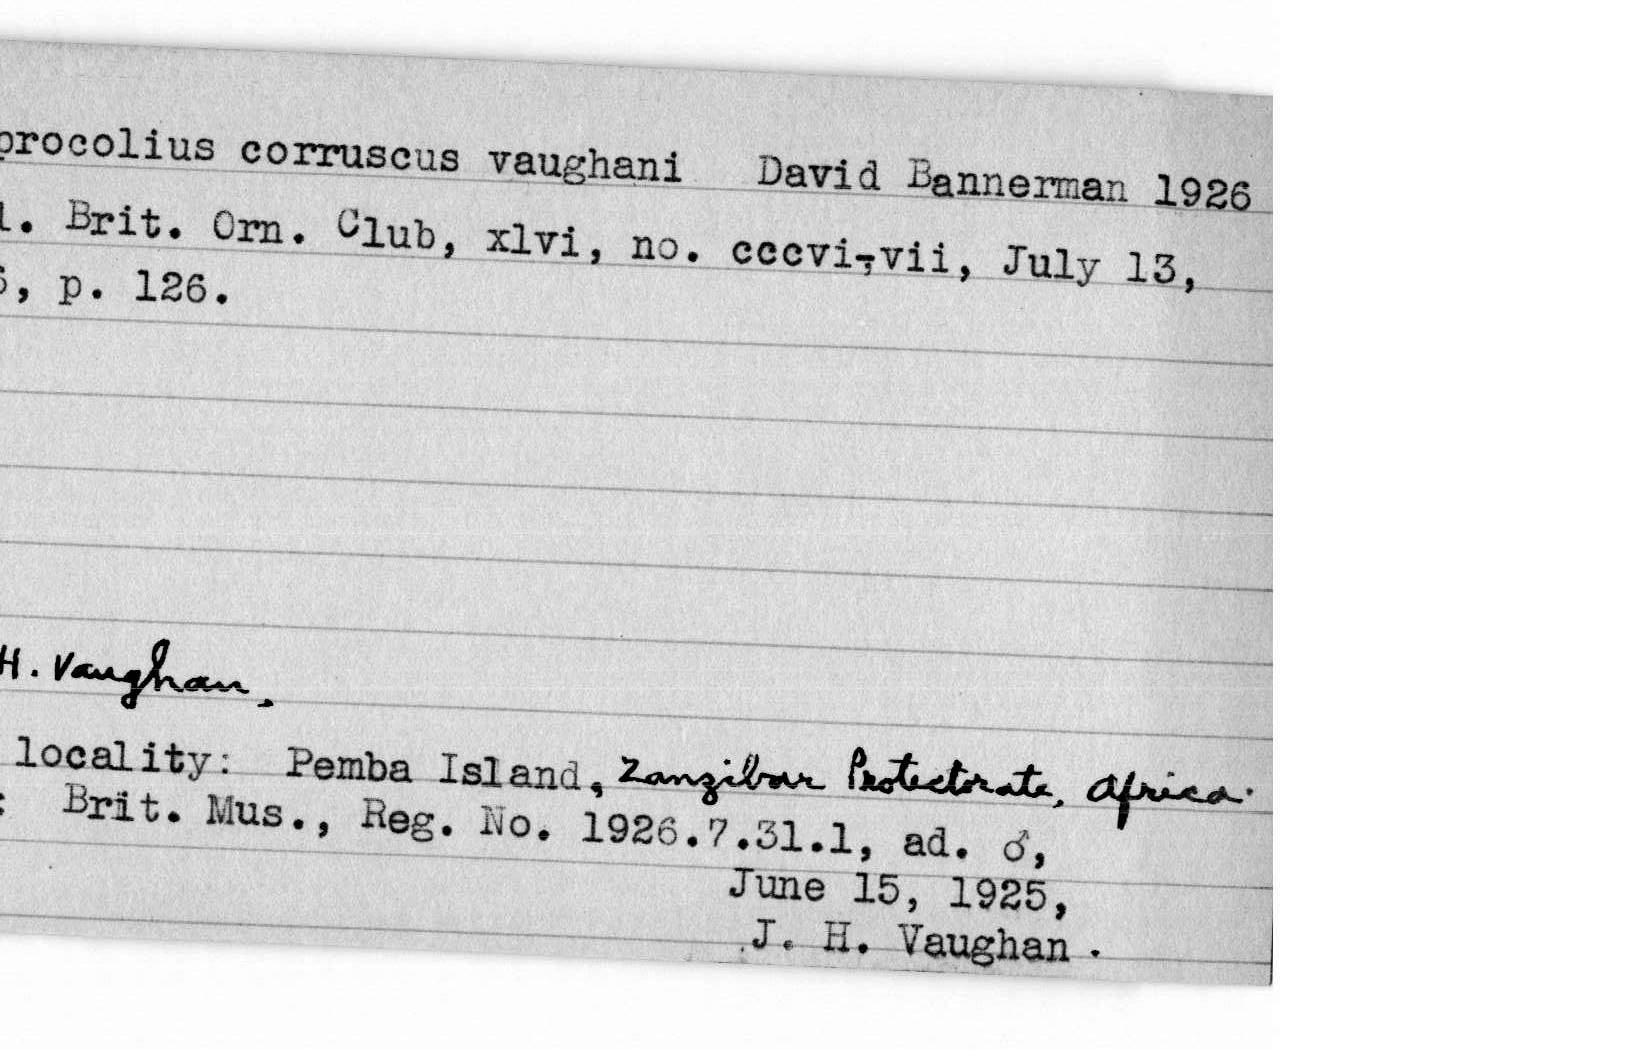 procolius corruscus vaughani David Bannerman 1926
l. Brit. Orn. Club, xlvi, no. cccvi-vii, July 13,
6, p. 126.
H. Vaughan.
locality: Pemba Island, Zanzibar Protectorate, Africa.
: Brit. Mus., Reg. No. 1926.7.31.1, ad. ♂,
June 15, 1925,
J. H. Vaughan.